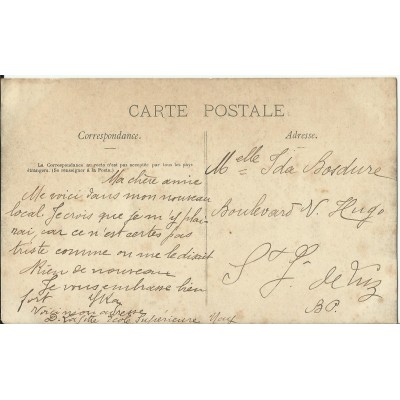 CARTE POSTALE
Correspondance.
Adresse.
La Correspondance au recto n'est pas acceptée par tous les pays
étrangers. (Se renseigner à la Poste.)
Ma chère amie
Me voici dans mon nouveau
local. Je crois que je m'y plai
rai car ce n'est certes pas
triste comme on me le disait
Rien de nouveau
Je vous embrasse bien
fort
Voici mon adresse
École Supérieure
Melle Ida Bosdure
Boulevard V. Hugo
St J. de Luz
BP.